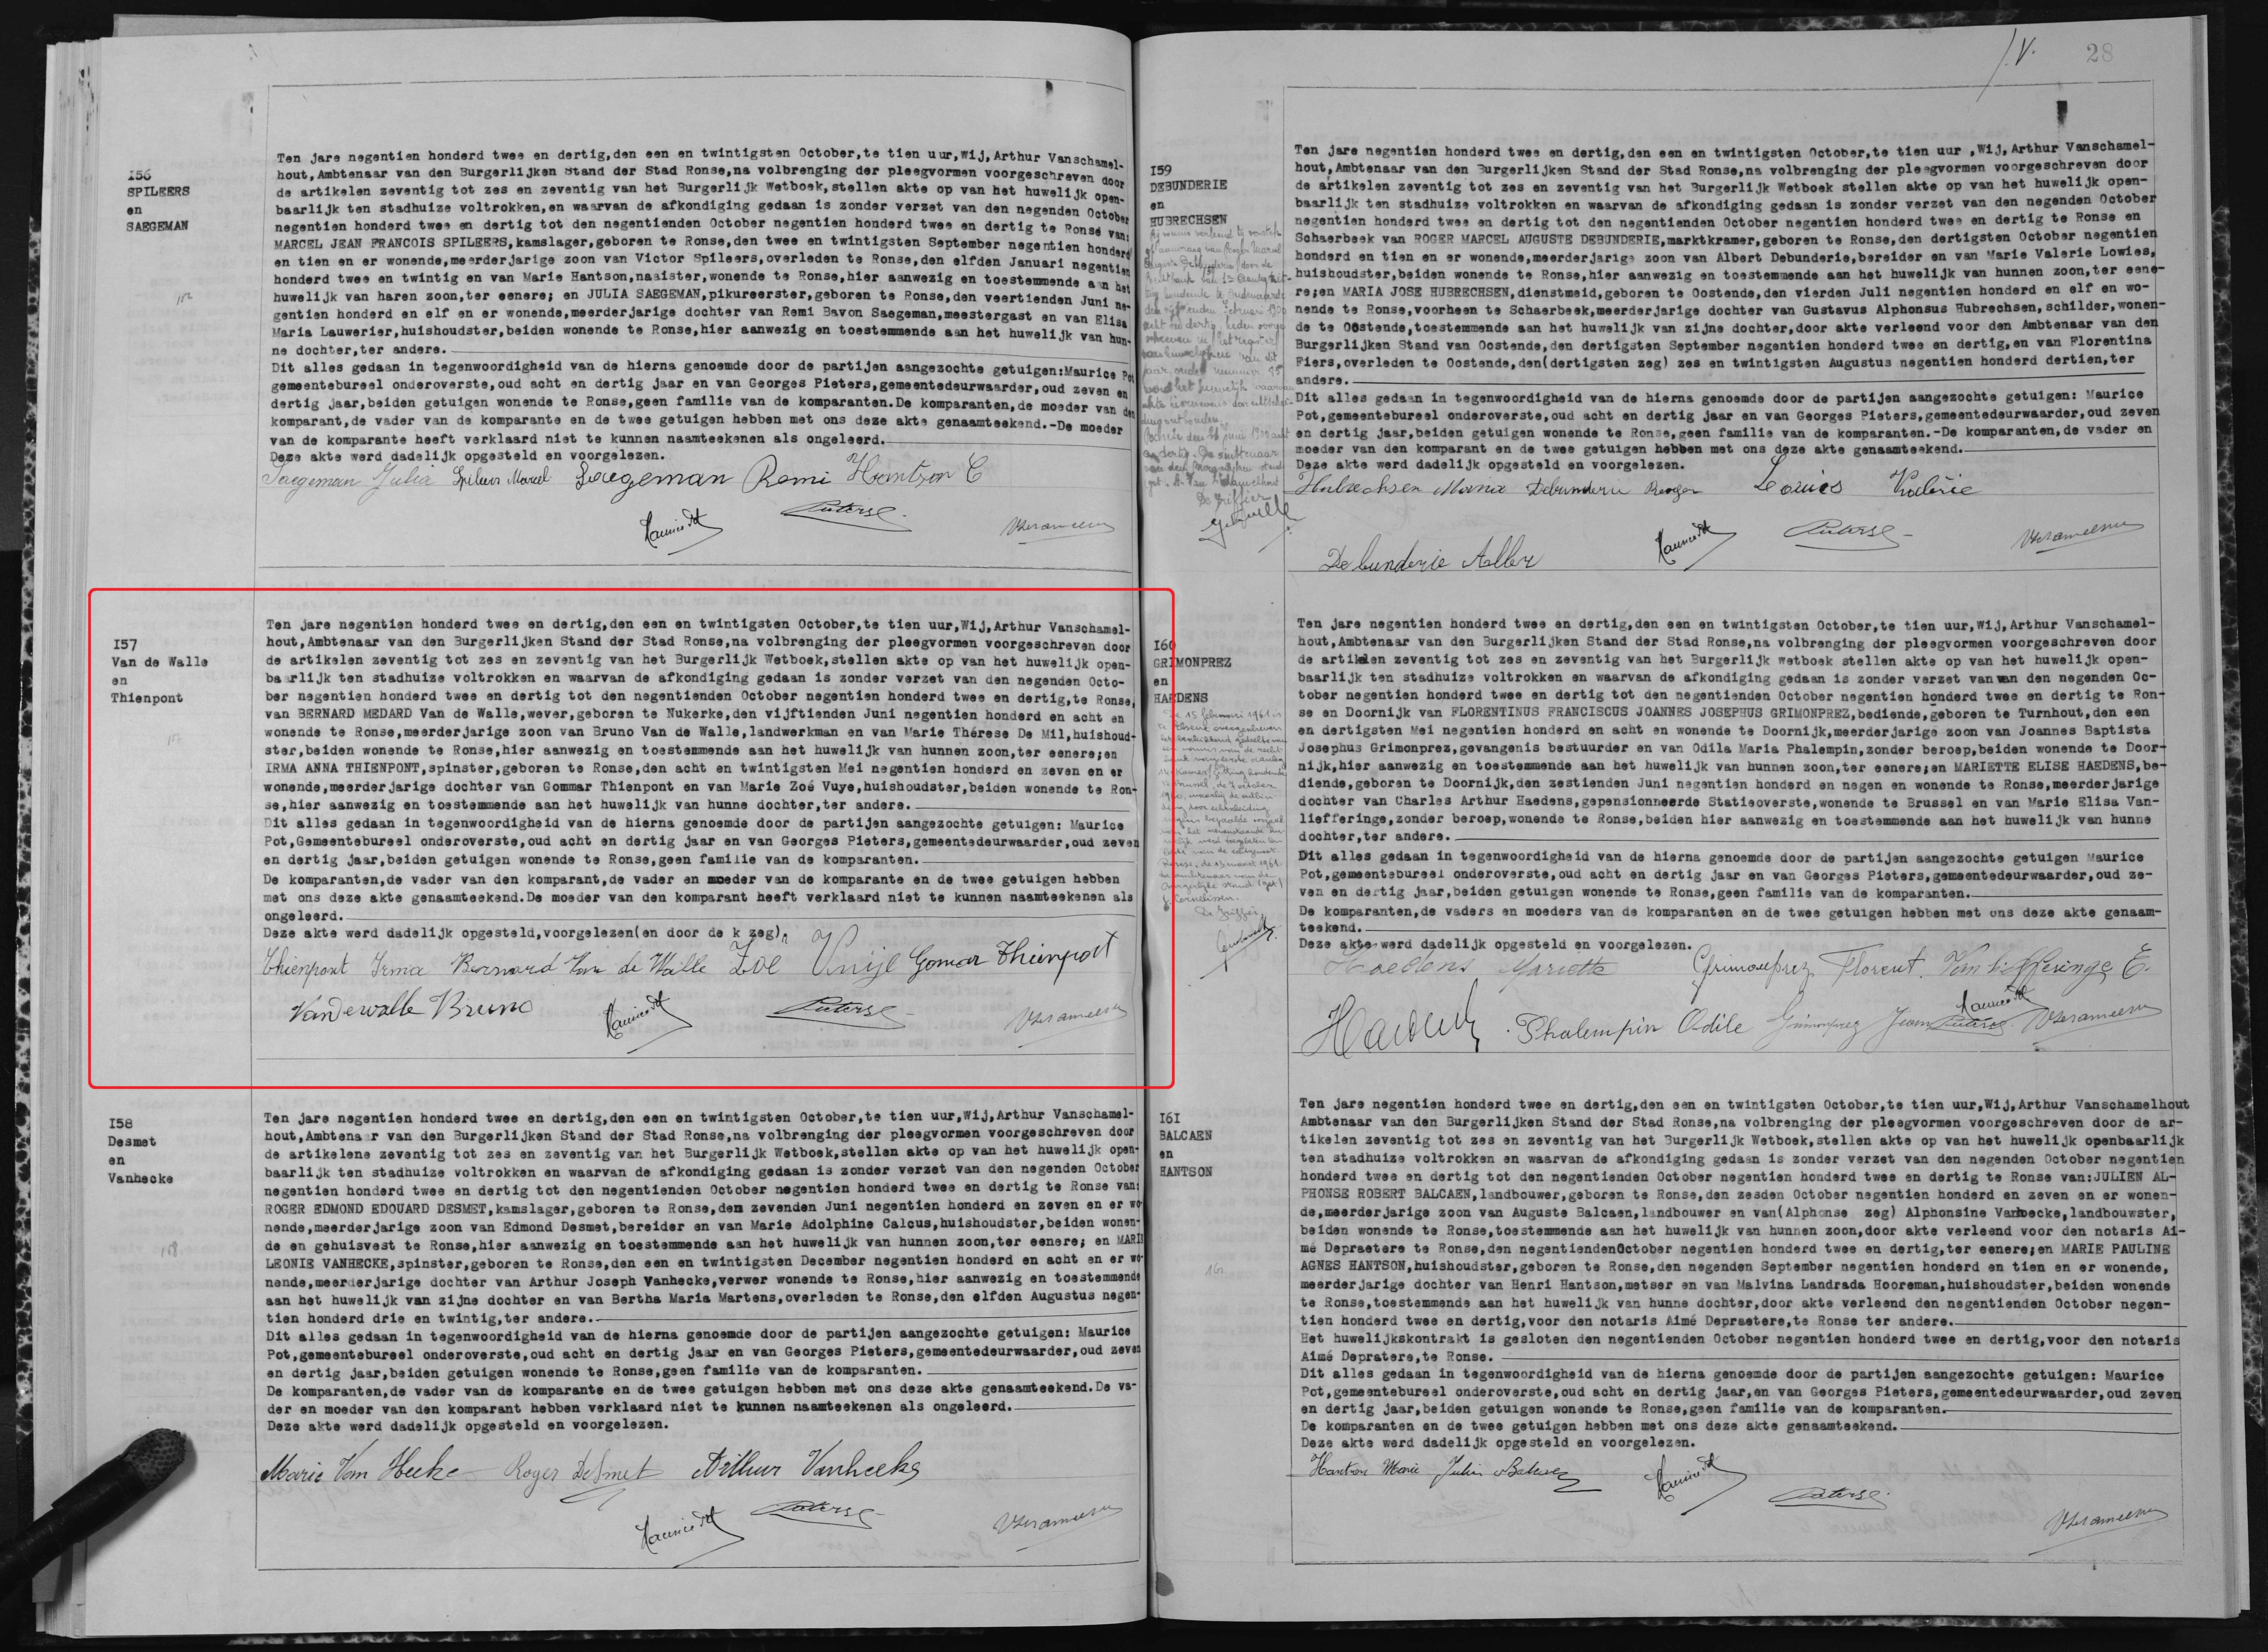 /.V. 28
156
SPILEERS
en
SAEGEMAN
Ten jare negentien honderd twee en dertig,den een en twintigsten October,te tien uur,Wij,Arthur Vanschamel-
hout,Ambtenaar van den Burgerlijken Stand der Stad Ronse,na volbrenging der pleegvormen voorgeschreven door
de artikelen zeventig tot zes en zeventig van het Burgerlijk Wetboek,stellen akte op van het huwelijk open-
baarlijk ten stadhuize voltrokken,en waarvan de afkondiging gedaan is zonder verzet van den negenden October
negentien honderd twee en dertig tot den negentienden October negentien honderd twee en dertig te Ronse van:
MARCEL JEAN FRANCOIS SPILEERS,kamslager,geboren te Ronse,den twee en twintigsten September negentien honderd
en tien en er wonende,meerderjarige zoon van Victor Spileers,overleden te Ronse,den elfden Januari negentien
honderd twee en twintig en van Marie Hantson,naaister,wonende te Ronse,hier aanwezig en toestemmende aan het
huwelijk van haren zoon,ter eenere; en JULIA SAEGEMAN,pikureerster,geboren te Ronse,den veertienden Juni ne-
gentien honderd en elf en er wonende,meerderjarige dochter van Remi Bavon Saegeman,meestergast en van Elisa
Maria Lauwerier,huishoudster,beiden wonende te Ronse,hier aanwezig en toestemmende aan het huwelijk van hun-
ne dochter,ter andere.
Dit alles gedaan in tegenwoordigheid van de hierna genoemde door de partijen aangezochte getuigen:Maurice Pot
gemeentebureel onderoverste,oud acht en dertig jaar en van Georges Pieters,gemeentedeurwaarder,oud zeven en
dertig jaar,beiden getuigen wonende te Ronse,geen familie van de komparanten.De komparanten,de moeder van den
komparant,de vader van de komparante en de twee getuigen hebben met ons deze akte genaamteekend.-De moeder
van de komparante heeft verklaard niet te kunnen naamteekenen als ongeleerd.
Deze akte werd dadelijk opgesteld en voorgelezen.
Saegeman Julia Spileers Marcel Saegeman Remi Hantson C
157
Van de Walle
en
Thienpont
Ten jare negentien honderd twee en dertig,den een en twintigsten October,te tien uur,Wij,Arthur Vanschamel-
hout,Ambtenaar van den Burgerlijken Stand der Stad Ronse,na volbrenging der pleegvormen voorgeschreven door
de artikelen zeventig tot zes en zeventig van het Burgerlijk Wetboek,stellen akte op van het huwelijk open-
baarlijk ten stadhuize voltrokken en waarvan de afkondiging gedaan is zonder verzet van den negenden Octo-
ber negentien honderd twee en dertig tot den negentienden October negentien honderd twee en dertig,te Ronse,
van BERNARD MEDARD Van de Walle,wever,geboren te Nukerke,den vijftienden Juni negentien honderd en acht en
wonende te Ronse,meerderjarige zoon van Bruno Van de Walle,landwerkman en van Marie Thérese De Mil,huishoud-
ster,beiden wonende te Ronse,hier aanwezig en toestemmende aan het huwelijk van hunnen zoon,ter eenere;en
IRMA ANNA THIENPONT,spinster,geboren te Ronse,den acht en twintigsten Mei negentien honderd en zeven en er
wonende,meerderjarige dochter van Gommar Thienpont en van Marie Zoé Vuye,huishoudster,beiden wonende te Ron-
se,hier aanwezig en toestemmende aan het huwelijk van hunne dochter,ter andere.
Dit alles gedaan in tegenwoordigheid van de hierna genoemde door de partijen aangezochte getuigen: Maurice
Pot,Gemeentebureel onderoverste,oud acht en dertig jaar en van Georges Pieters,gemeentedeurwaarder,oud zeven
en dertig jaar,beiden getuigen wonende te Ronse,geen familie van de komparanten.
De komparanten,de vader van den komparant,de vader en moeder van de komparante en de twee getuigen hebben
met ons deze akte genaamteekend.De moeder van den komparant heeft verklaard niet te kunnen naamteekenen als
ongeleerd.
Deze akte werd dadelijk opgesteld,voorgelezen(en door de k zeg).
Thienpont Irma Bernard Van de Walle Zoe Vuije Gomar Thienpont
Vandewalle Bruno
158
Desmet
en
Vanhecke
Ten jare negentien honderd twee en dertig,den een en twintigsten October,te tien uur,Wij,Arthur Vanschamel-
hout,Ambtenaar van den Burgerlijken Stand der Stad Ronse,na volbrenging der pleegvormen voorgeschreven door
de artikelene zeventig tot zes en zeventig van het Burgerlijk Wetboek,stellen akte op van het huwelijk open-
baarlijk ten stadhuize voltrokken en waarvan de afkondiging gedaan is zonder verzet van den negenden October
negentien honderd twee en dertig tot den negentienden October negentien honderd twee en dertig te Ronse van:
ROGER EDMOND EDOUARD DESMET,kamslager,geboren te Ronse,den zevenden Juni negentien honderd en zeven en er wo-
nende,meerderjarige zoon van Edmond Desmet,bereider en van Marie Adolphine Calcus,huishoudster,beiden wonen-
de en gehuisvest te Ronse,hier aanwezig en toestemmende aan het huwelijk van hunnen zoon,ter eenere; en MARIE
LEONIE VANHECKE,spinster,geboren te Ronse,den een en twintigsten December negentien honderd en acht en er wo-
nende,meerderjarige dochter van Arthur Joseph Vanhecke,verwer wonende te Ronse,hier aanwezig en toestemmende
aan het huwelijk van zijne dochter en van Bertha Maria Martens,overleden te Ronse,den elfden Augustus negen-
tien honderd drie en twintig,ter andere.
Dit alles gedaan in tegenwoordigheid van de hierna genoemde door de partijen aangezochte getuigen: Maurice
Pot,gemeentebureel onderoverste,oud acht en dertig jaar en van Georges Pieters,gemeentedeurwaarder,oud zeven
en dertig jaar,beiden getuigen wonende te Ronse,geen familie van de komparanten.
De komparanten,de vader van de komparante en de twee getuigen hebben met ons deze akte genaamteekend.De va-
der en moeder van den komparant hebben verklaard niet te kunnen naamteekenen als ongeleerd.
Deze akte werd dadelijk opgesteld en voorgelezen.
Marie Van Hecke Roger DeSmet Arthur Vanhecke
158
159
DEBUNDERIE
en
HUBRECHSEN
Ten jare negentien honderd twee en dertig,den een en twintigsten October,te tien uur ,Wij,Arthur Vanschamel-
hout,Ambtenaar van den Burgerlijken Stand der Stad Ronse,na volbrenging der pleegvormen voorgeschreven door
de artikelen zeventig tot zes en zeventig van het Burgerlijk Wetboek stellen akte op van het huwelijk open-
baarlijk ten stadhuize voltrokken en waarvan de afkondiging gedaan is zonder verzet van den negenden October
negentien honderd twee en dertig tot den negentienden October negentien honderd twee en dertig te Ronse en
Schaerbeek van ROGER MARCEL AUGUSTE DEBUNDERIE,marktkramer,geboren te Ronse,den dertigsten October negentien
honderd en tien en er wonende,meerderjarige zoon van Albert Debunderie,bereider en van Marie Valerie Lowies,
huishoudster,beiden wonende te Ronse,hier aanwezig en toestemmende aan het huwelijk van hunnen zoon,ter eene-
re;en MARIA JOSE HUBRECHSEN,dienstmeid,geboren te Oostende,den vierden Juli negentien honderd en elf en wo-
nende te Ronse,voorheen te Schaerbeek,meerderjarige dochter van Gustavus Alphonsus Hubrechsen,schilder,wonen-
de te Oostende,toestemmende aan het huwelijk van zijne dochter,door akte verleend voor den Ambtenaar van den
Burgerlijken Stand van Oostende,den dertigsten September negentien honderd twee en dertig,en van Florentina
Fiers,overleden te Oostende,den(dertigsten zeg) zes en twintigsten Augustus negentien honderd dertien,ter
andere.
Dit alles gedaan in tegenwoordigheid van de hierna genoemde door de partijen aangezochte getuigen: Maurice
Pot,gemeentebureel onderoverste,oud acht en dertig jaar en van Georges Pieters,gemeentedeurwaarder,oud zeven
en dertig jaar,beiden getuigen wonende te Ronse,geen familie van de komparanten.-De komparanten,de vader en
moeder van den komparant en de twee getuigen hebben met ons deze akte genaamteekend.
Deze akte werd dadelijk opgesteld en voorgelezen.
Hubrechsen Maria Debunderie Roger Lowies Valerie
Debunderie Albert
160
GRIMONPREZ
en
HAEDENS
Ten jare negentien honderd twee en dertig,den een en twintigsten October,te tien uur,Wij,Arthur Vanschamel-
hout,Ambtenaar van den Burgerlijken Stand der Stad Ronse,na volbrenging der pleegvormen voorgeschreven door
de artikelen zeventig tot zes en zeventig van het Burgerlijk wetboek stellen akte op van het huwelijk open-
baarlijk ten stadhuize voltrokken en waarvan de afkondiging gedaan is zonder verzet van van den negenden Oc-
tober negentien honderd twee en dertig tot den negentienden October negentien honderd twee en dertig te Ron-
se en Doornijk van FLORENTINUS FRANCISCUS JOANNES JOSEPHUS GRIMONPREZ,bediende,geboren te Turnhout,den een
en dertigsten Mei negentien honderd en acht en wonende te Doornijk,meerderjarige zoon van Joannes Baptista
Josephus Grimonprez,gevangenis bestuurder en van Odila Maria Phalempin,zonder beroep,beiden wonende te Door-
nijk,hier aanwezig en toestemmende aan het huwelijk van hunnen zoon,ter eenere;en MARIETTE ELISE HAEDENS,be-
diende,geboren te Doornijk,den zestienden Juni negentien honderd en negen en wonende te Ronse,meerderjarige
dochter van Charles Arthur Haedens,gepensionneerde Statieoverste,wonende te Brussel en van Marie Elisa Van-
liefferinge,zonder beroep,wonende te Ronse,beiden hier aanwezig en toestemmende aan het huwelijk van hunne
dochter,ter andere.
Dit alles gedaan in tegenwoordigheid van de hierna genoemde door de partijen aangezochte getuigen Maurice
Pot,gemeentebureel onderoverste,oud acht en dertig jaar en van Georges Pieters,gemeentedeurwaarder,oud ze-
ven en dertig jaar,beiden getuigen wonende te Ronse,geen familie van de komparanten.
De komparanten,de vaders en moeders van de komparanten en de twee getuigen hebben met ons deze akte genaam-
teekend.
Deze akte werd dadelijk opgesteld en voorgelezen.
Haedens Mariette Grimonprez Florent. Vanliefferinge E.
Phalempin Odile Grimonprez Jean
161
BALCAEN
en
HANTSON
Ten jare negentien honderd twee en dertig,den een en twintigsten October,te tien uur,Wij,Arthur Vanschamelhout
Ambtenaar van den Burgerlijken Stand der Stad Ronse,na volbrenging der pleegvormen voorgeschreven door de ar-
tikelen zeventig tot zes en zeventig van het Burgerlijk Wetboek,stellen akte op van het huwelijk openbaarlijk
ten stadhuize voltrokken en waarvan de afkondiging gedaan is zonder verzet van den negenden October negentien
honderd twee en dertig tot den negentienden October negentien honderd twee en dertig te Ronse van:JULIEN AL-
PHONSE ROBERT BALCAEN,landbouwer,geboren te Ronse,den zesden October negentien honderd en zeven en er wonen-
de,meerderjarige zoon van Auguste Balcaen,landbouwer en van(Alphonse zeg) Alphonsine Vanhoecke,landbouwster,
beiden wonende te Ronse,toestemmende aan het huwelijk van hunnen zoon,door akte verleend voor den notaris Ai-
mé Depraetere te Ronse,den negentiendenOctober negentien honderd twee en dertig,ter eenere;en MARIE PAULINE
AGNES HANTSON,huishoudster,geboren te Ronse,den negenden September negentien honderd en tien en er wonende,
meerderjarige dochter van Henri Hantson,metser en van Malvina Landrada Hooreman,huishoudster,beiden wonende
te Ronse,toestemmende aan het huwelijk van hunne dochter,door akte verleend den negentienden October negen-
tien honderd twee en dertig,voor den notaris Aimé Depraetere,te Ronse ter andere.
Het huwelijkskontrakt is gesloten den negentienden October negentien honderd twee en dertig,voor den notaris
Aimé Depratere,te Ronse.
Dit alles gedaan in tegenwoordigheid van de hierna genoemde door de partijen aangezochte getuigen: Maurice
Pot,gemeentebureel onderoverste,oud acht en dertig jaar,en van Georges Pieters,gemeentedeurwaarder,oud zeven
en dertig jaar,beiden getuigen wonende te Ronse,geen familie van de komparanten.
De komparanten en de twee getuigen hebben met ons deze akte genaamteekend.
Deze akte werd dadelijk opgesteld en voorgelezen.
Hantson Marie Julien Balcaen